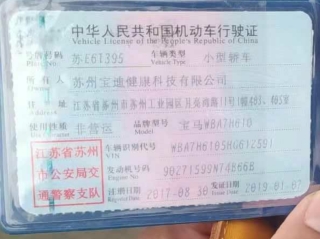 中华人民共和国机动车行驶证
Vehicle License of the People's Republic of China
号牌号码 苏E61395 车辆类型 小型轿车
Plate No. Vehicle Type
所有人 苏州宝迪健康科技有限公司
住址
使用性质 非营运 品牌型号 宝马WBA7H610
江苏省苏州
市公安局交
通警察支队
车辆识别代号
VIN
发动机号码 90271599N74B66B
Engine No.
注册日期 2017-08-30 发证日期 2019-01-07